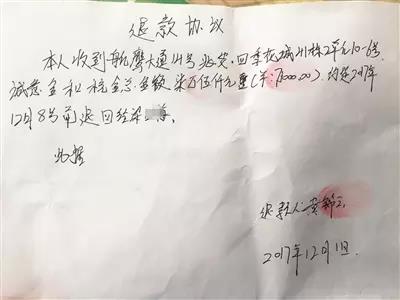 退款协议
本人收到航鹰大道14号 四季花城41栋2单元10-6号
诚意金和税金总金额柒万伍仟元 约定2017年
12月8号前退回给
此据
退款人:黄
2017年12月1日